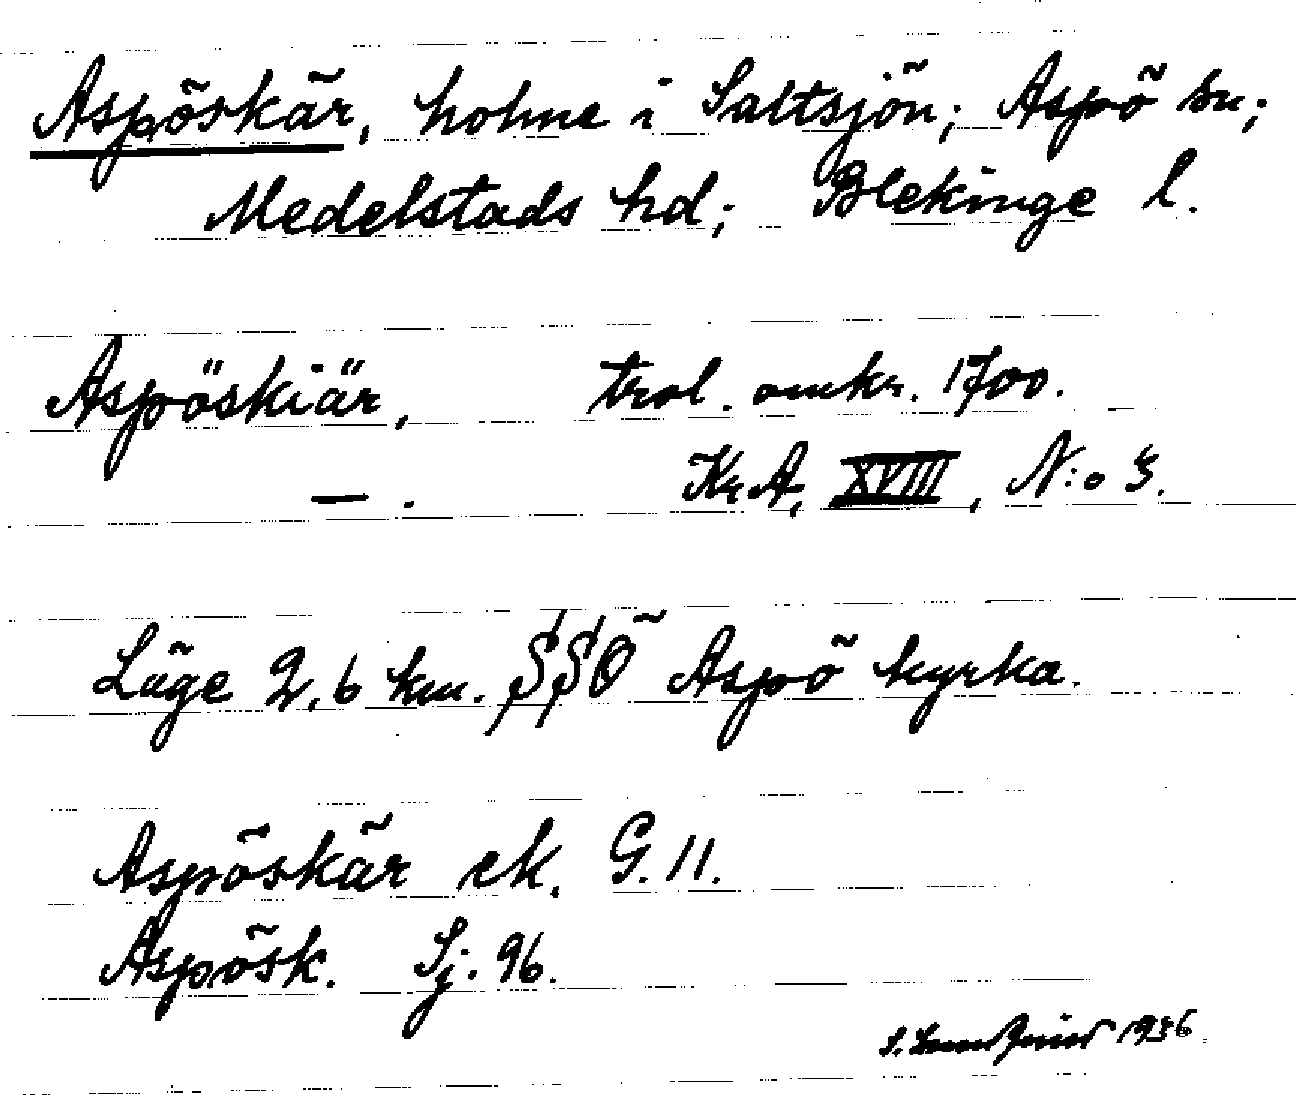 Aspöskär, holme i Saltsjön; Aspö sn;
Medelstads hd; Blekinge l.
Aspöskiär, trol. omkr. 1700.
— . KrA, XVIII, N:o 3.
Läge 2,6 km. SSÖ Aspö kyrka.
Aspöskär ek. G. 11.
Aspösk. Sj. 96.
S. 1936.